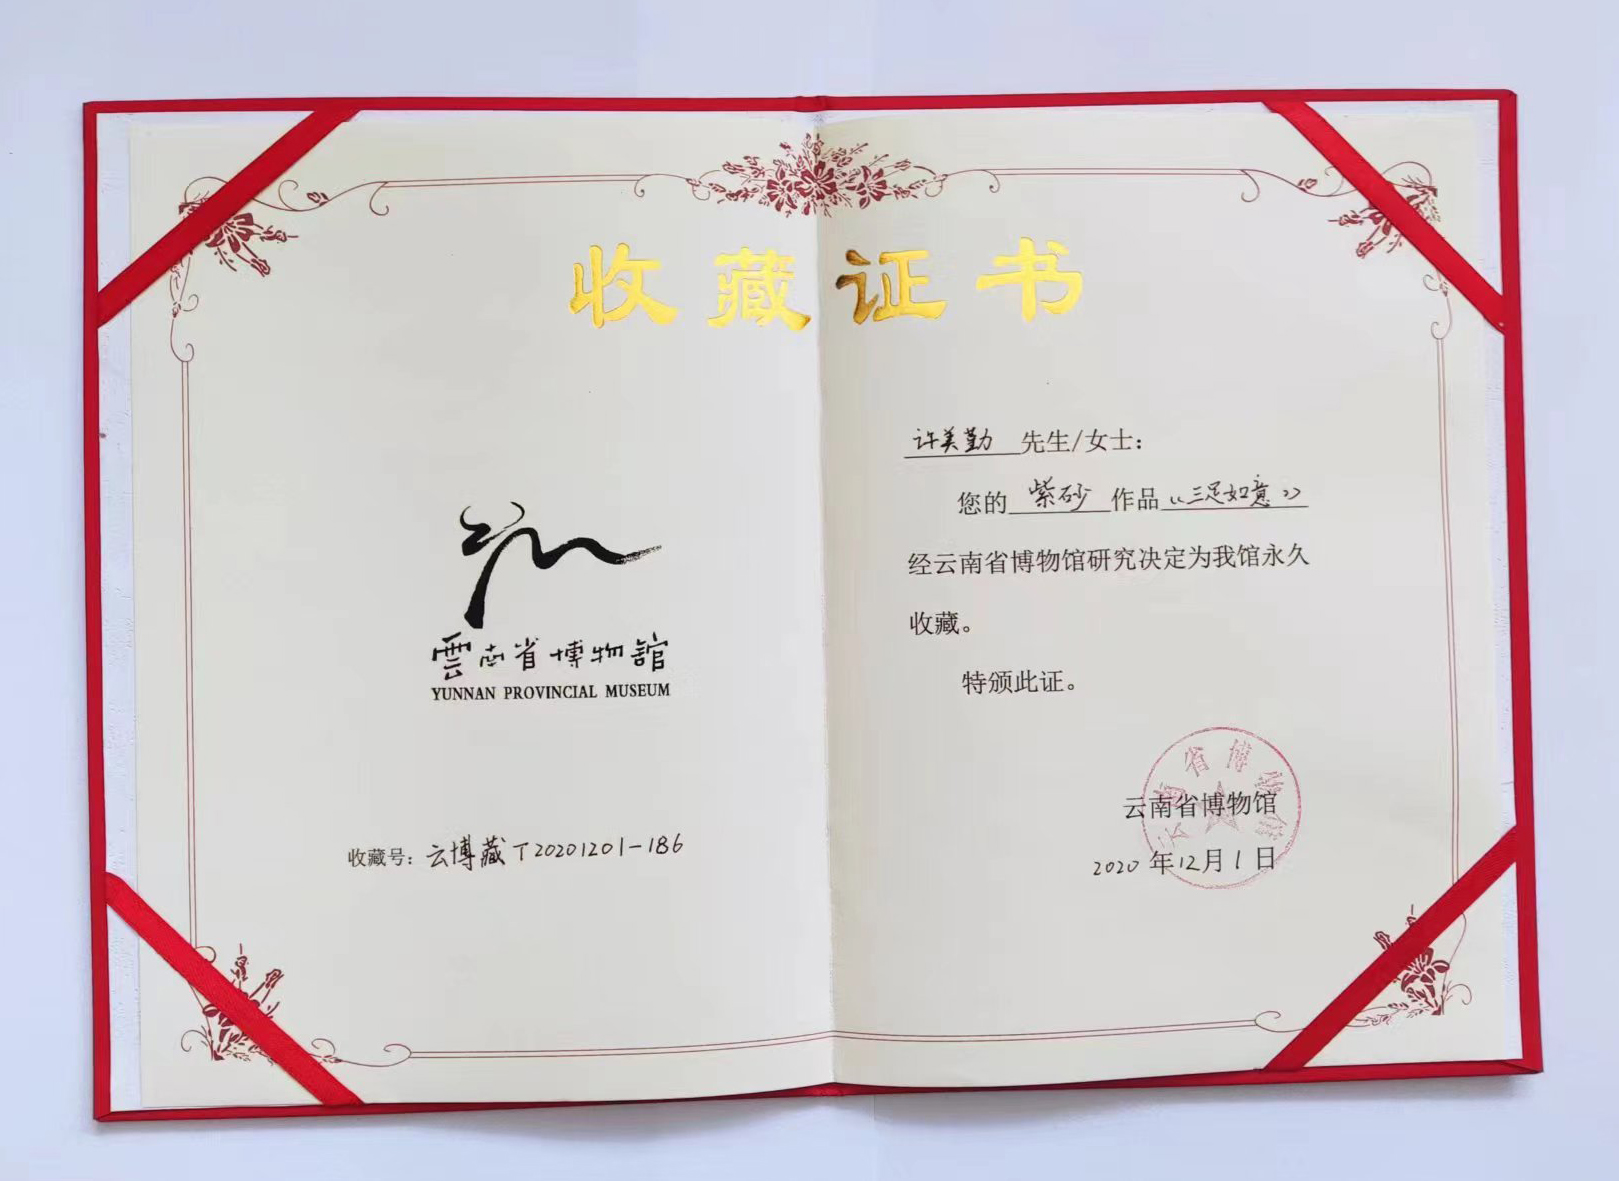 收藏证书
雲南省博物館
YUNNAN PROVINCIAL MUSEUM
收藏号：云博藏T20201201-186
许美勤 先生/女士：
您的 紫砂 作品《三足如意》
经云南省博物馆研究决定为我馆永久
收藏。
特颁此证。
云南省博物馆
云南省博物馆
2020 年12月1日